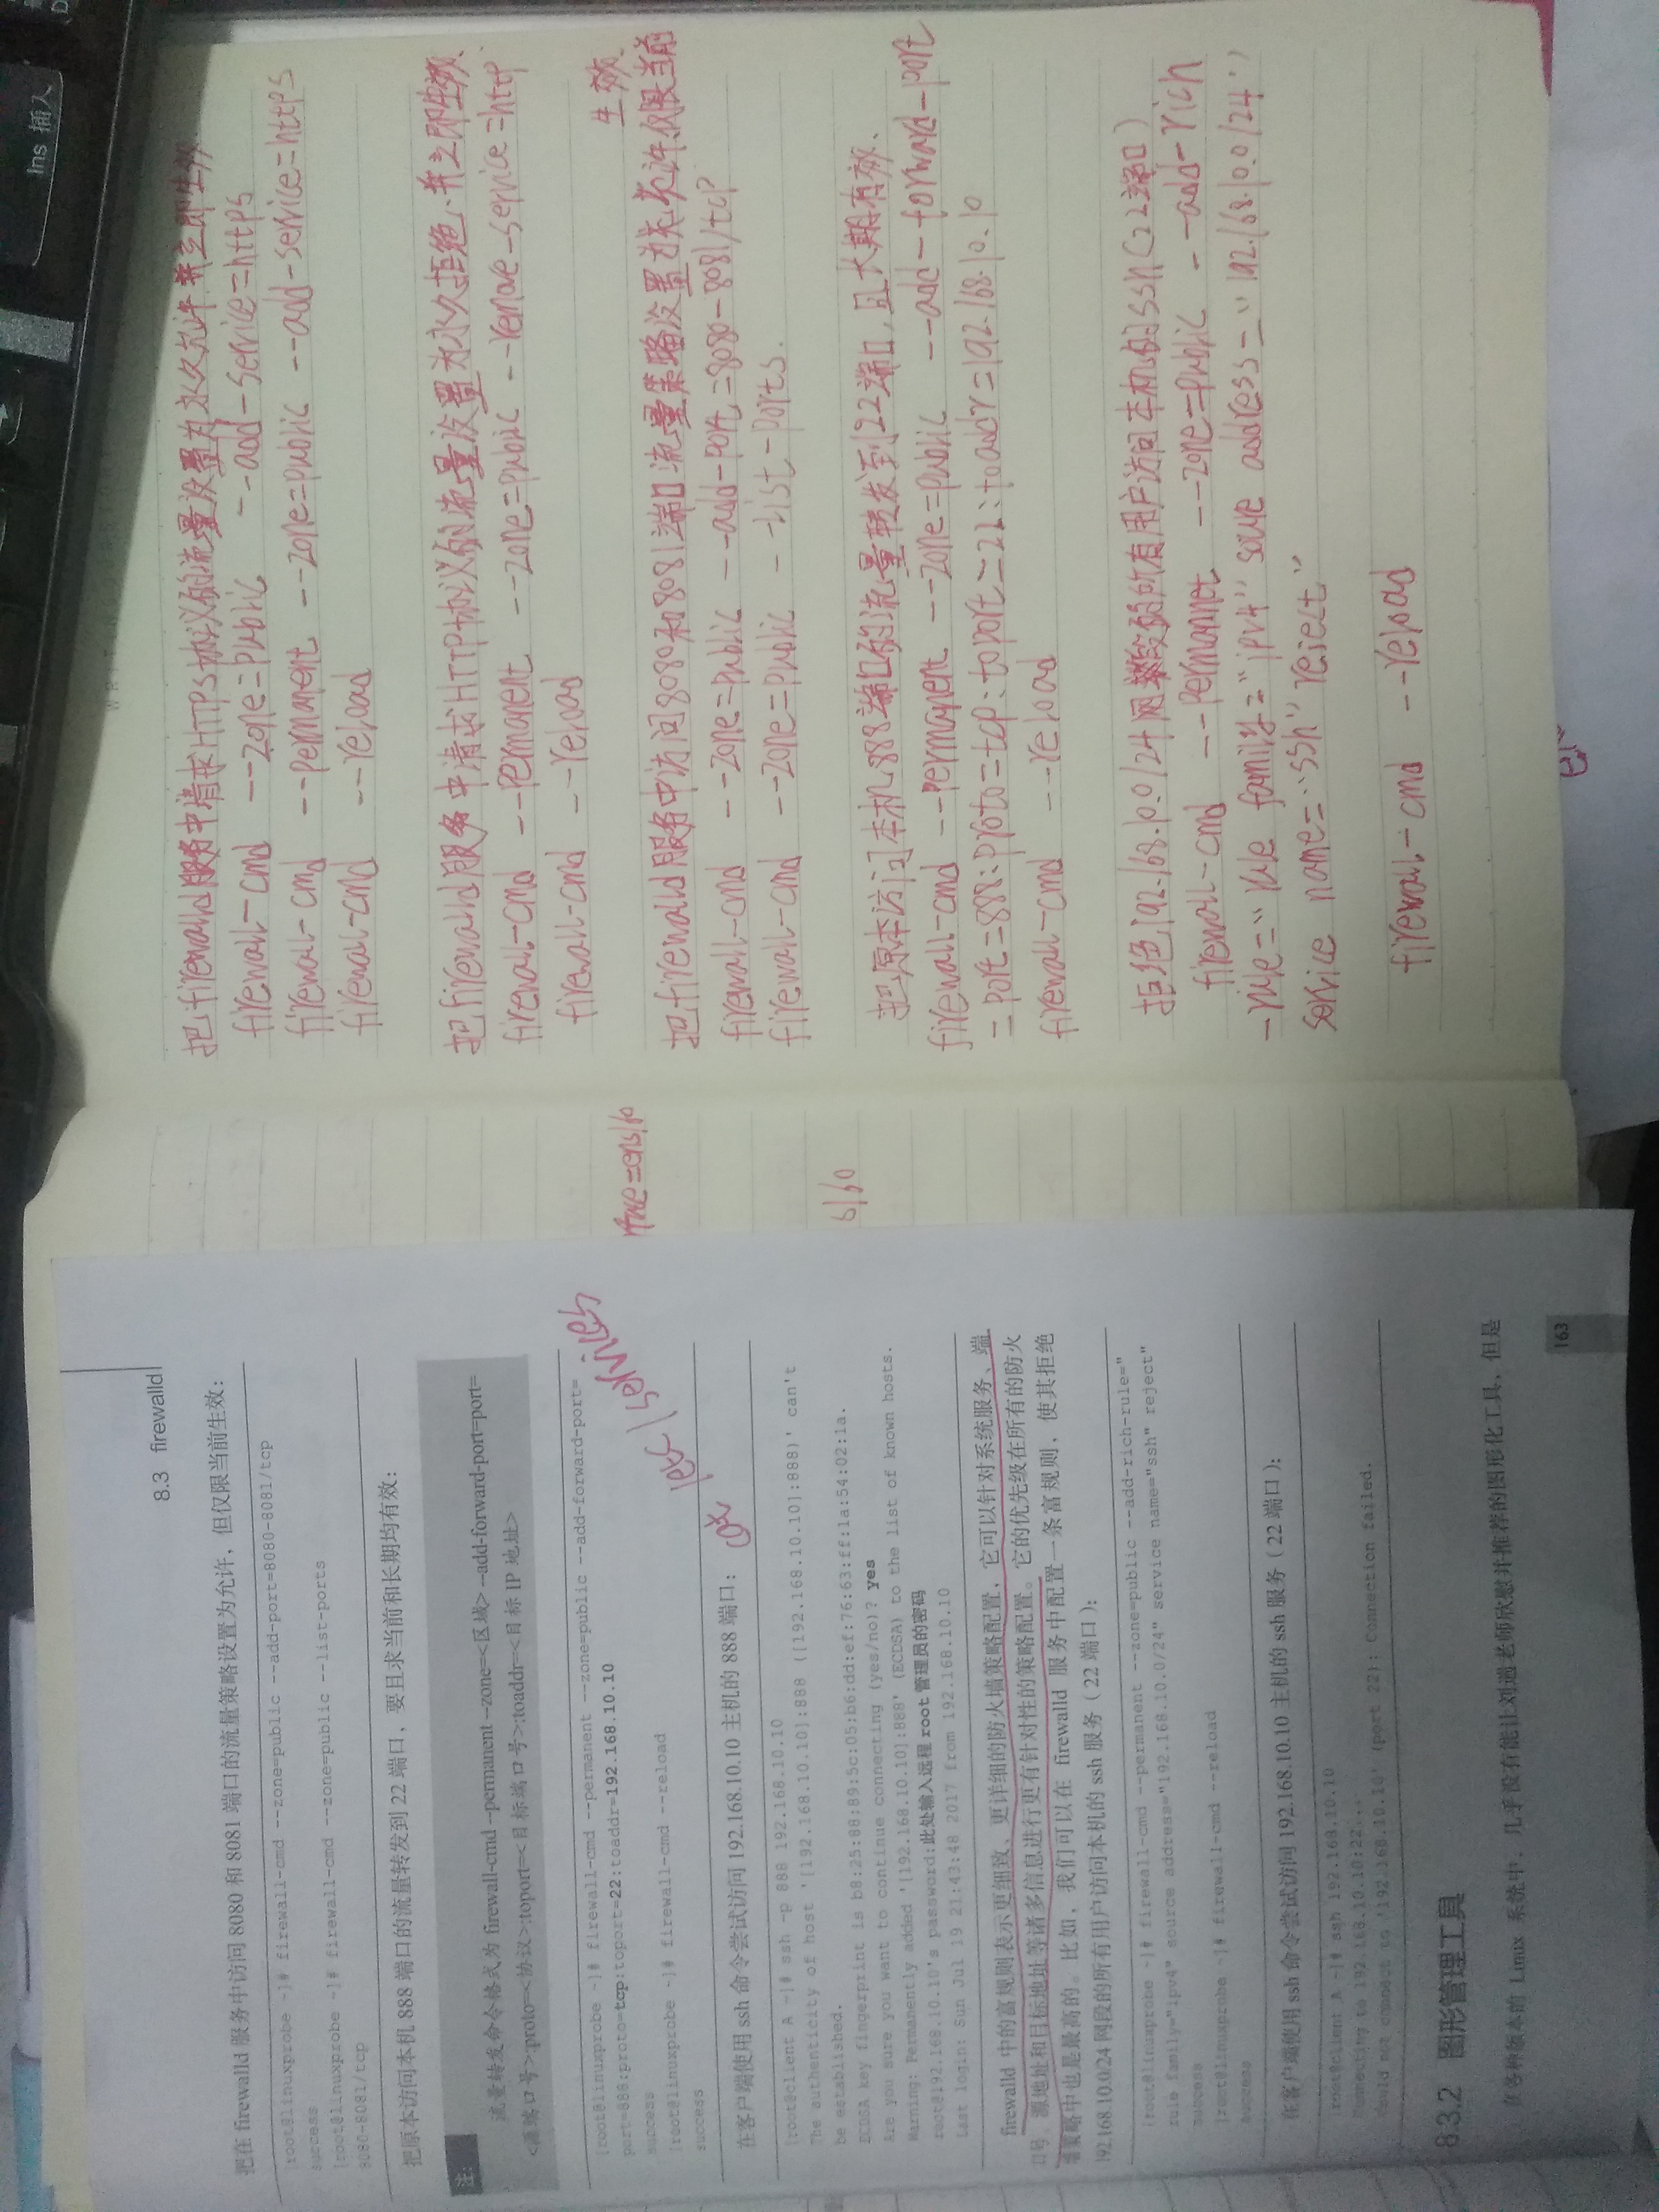 8.3 firewalld
把在 firewalld 服务中访问 8080 和 8081 端口的流量策略设置为允许，但仅限当前生效：
[root@linuxprobe ~]# firewall-cmd --zone=public --add-port=8080-8081/tcp
success
[root@linuxprobe ~]# firewall-cmd --zone=public --list-ports
8080-8081/tcp
把原本访问本机 888 端口的流量转发到 22 端口，要且求当前和长期均有效：
注：
流量转发命令格式为 firewall-cmd --permanent --zone=<区域> --add-forward-port=port=
<源端口号>:proto=<协议>:toport=<目标端口号>:toaddr=<目标 IP 地址>
[root@linuxprobe ~]# firewall-cmd --permanent --zone=public --add-forward-port=
port=888:proto=tcp:toport=22:toaddr=192.168.10.10
success
[root@linuxprobe ~]# firewall-cmd --reload
success
在客户端使用 ssh 命令尝试访问 192.168.10.10 主机的 888 端口：
[root@client A ~]# ssh -p 888 192.168.10.10
The authenticity of host '[192.168.10.10]:888 ([192.168.10.10]:888)' can't
be established.
ECDSA key fingerprint is b8:25:88:89:5c:05:b6:dd:ef:76:63:ff:1a:54:02:1a.
Are you sure you want to continue connecting (yes/no)? yes
Warning: Permanently added '[192.168.10.10]:888' (ECDSA) to the list of known hosts.
root@192.168.10.10's password:此处输入远程 root 管理员的密码
Last login: Sun Jul 19 21:43:48 2017 from 192.168.10.10
firewalld 中的富规则表示更细致、更详细的防火墙策略配置，它可以针对系统服务、端
口号、源地址和目标地址等诸多信息进行更有针对性的策略配置。它的优先级在所有的防火
墙策略中也是最高的。比如，我们可以在 firewalld 服务中配置一条富规则，使其拒绝
192.168.10.0/24 网段的所有用户访问本机的 ssh 服务（22 端口）：
[root@linuxprobe ~]# firewall-cmd --permanent --zone=public --add-rich-rule="
rule family="ipv4" source address="192.168.10.0/24" service name="ssh" reject"
success
[root@linuxprobe ~]# firewall-cmd --reload
success
在客户端使用 ssh 命令尝试访问 192.168.10.10 主机的 ssh 服务（22 端口）：
[root@client A ~]# ssh 192.168.10.10
Connecting to 192.168.10.10:22...
Could not connect to '192.168.10.10' (port 22): Connection failed.
8.3.2 图形管理工具
在各种版本的 Linux 系统中，几乎没有能让刘遄老师欣慰并推荐的图形化工具，但是
163
把firewalld服务中请求HTTPS协议的流量设置为永久允许并立即生效
firewall-cmd --zone=public --add-service=https
firewall-cmd --permanent --zone=public --add-service=https
firewall-cmd --reload
把firewalld服务中请求HTTP协议的流量设置为永久拒绝,并立即生效.
firewall-cmd --permanent --zone=public --remove-service=http
firewall-cmd --reload
把firewalld服务中访问8080和8081端口流量策略设置为关允许,仅限当前
生效
firewall-cmd --zone=public --add-port=8080-8081/tcp
firewall-cmd --zone=public --list-ports.
把原本访问本机888端口的流量转发到22端口,且长期有效.
firewall-cmd --permanent --zone=public --add-forward-port
=port=888:proto=tcp:toport=22:toaddr=192.168.10.10
firewall-cmd --reload
拒绝192.168.10.0/24网段的所有用户访问本机的ssh(22端口)
firewall-cmd --permannet --zone=public --add-rich
-rule="rule family="ipv4" soure address="192.168.10.0/24"
service name="ssh" reject"
firewall-cmd --reload
Ins 插入